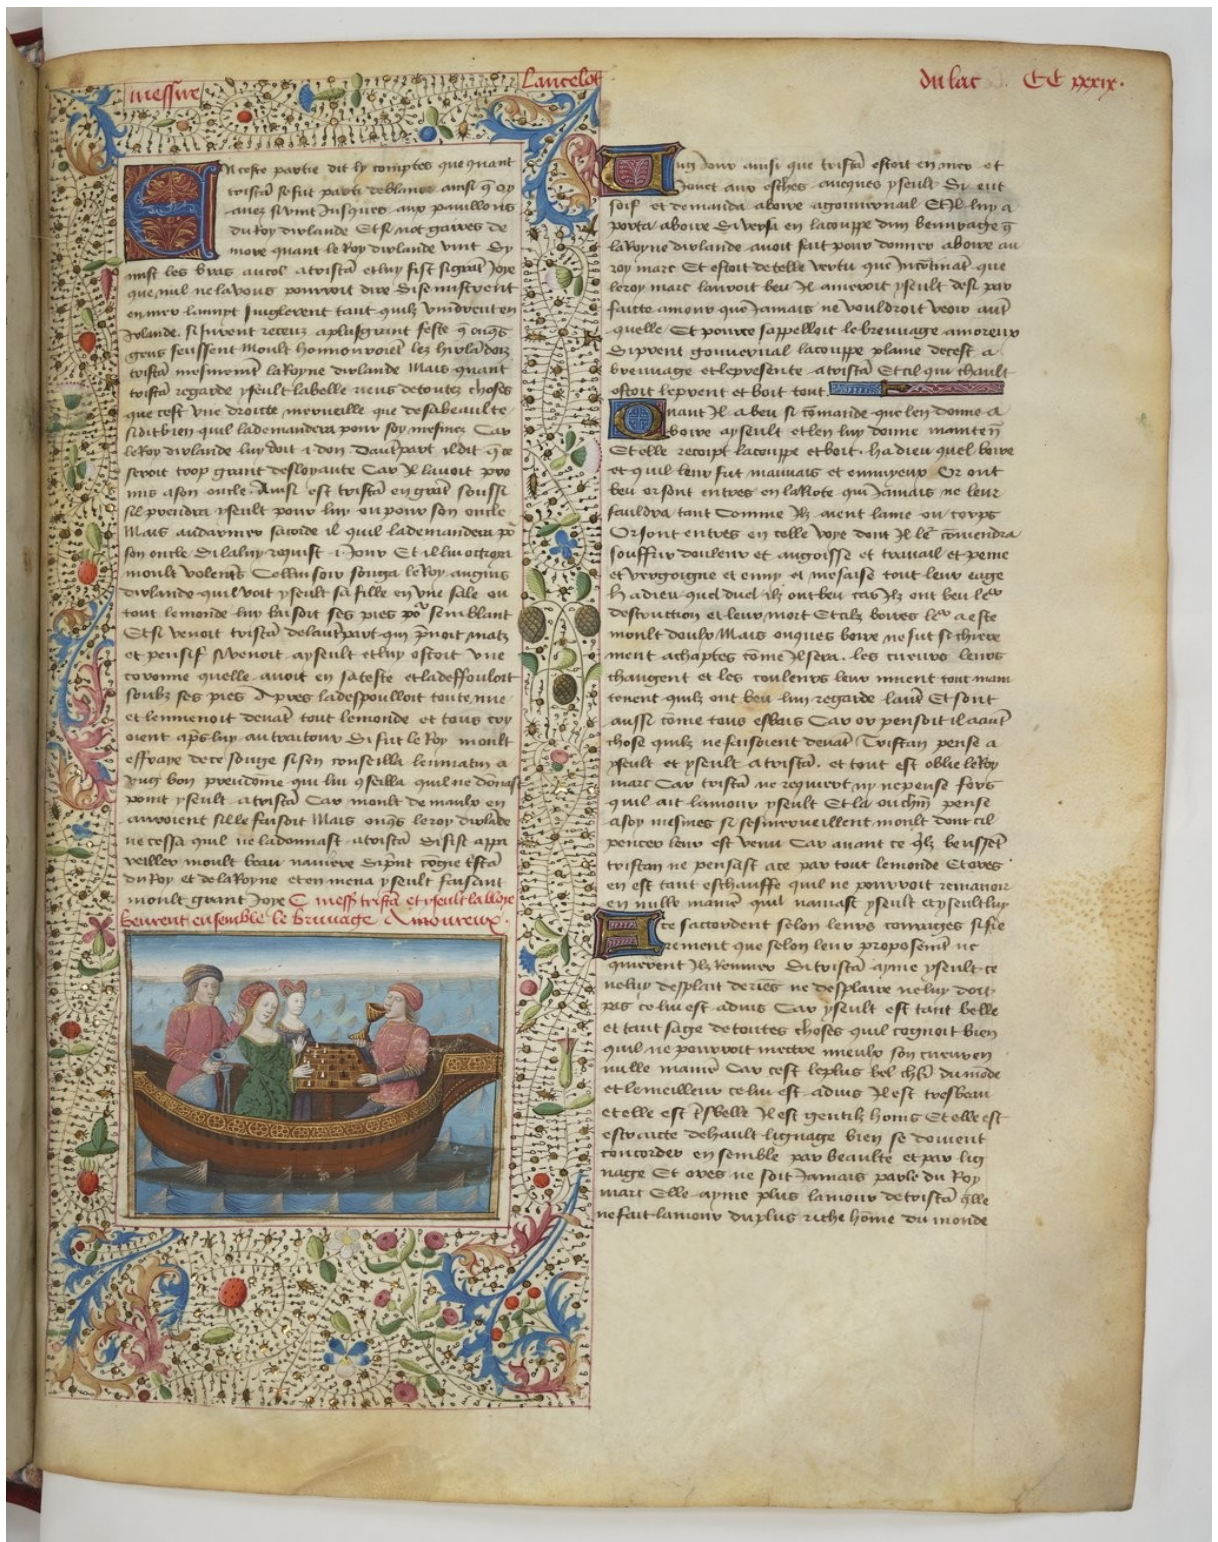 messire Lancelot du lac CC xxxix.
En ceste partie dit ly comptes que quant
tristã se fut parti de blanor ainsi q̃ oy
auez si vint Jusques aux pauillons
du Roy dirlande Et si not gaires de
more quant le Roy dirlande vint Sy
mist les bras au col a tristã et luy fist si grãt Joye
que nul ne la vous pourroit dire Si se misdrent
en mer
Jrlande si furent receuz a plus grant feste q̃ onq̃s
gens feussent Moult honnouroiẽt les hirlãdois
tristã mesmemẽt la Royne dirlande Mais quant
tristã regarde yseult la belle riens de toutes choses
que cest vne droitte merueille que de sa beaulte
si dit bien quil la demandera pour soy mesmes Car
le Roy dirlande luy doit .i. don Dautrepart il dit q̃ ce
seroit trop grant desloyaute Car Jl lauoit pro
mis a son oncle Ainsi est tristã en grãt soussi
sil prendra yseult pour luy ou pour son oncle
Mais au darrnier sacorde il quil la demandera po᷑
son oncle Si la luy requist .i. Jour Et il luy octroya
moult volentẽs Celluy soir songa le Roy anguis
dirlande quil voit yseult sa fille en vne sale ou
tout le monde luy baisoit ses pies po᷑ semblant
Et si venoit tristã delautrepart
et pensif si venoit a yseult et luy ostoit vne
coronne quelle auoit en sa teste et la deffouloit
soubz ses pies Apres la despoulloit toute nue
et lenmenoit deuãt tout le monde et tous
apres luy Si fut le Roy moult
effraye de ce songe si sen conseilla lenmatin a
vng bon preudõme qui luy cõseilla quil ne donast
point yseult a tristã Car moult de maulx en
auroient sille faisoit Mais onq̃s le roy dirlãde
ne cessa quil ne la donnast a tristã Si fist appa
reiller moult beau nauire Si prĩt congie tristã
du Roy et de la Royne et en mena yseult faisant
moult grant Joye C mess̃ tristã et yseult la bloye
beurent ensemble le bruuage Amoureux.
Ung Jour ainsi que tristã estoit en mer et
Jouet aux esches auecques yseult Si eut
soif et demanda a boire a gouuernail Et Jl luy a
porta a boire Si versa en la couppe dun beuurage q̃
la Royne dirlande auoit fait pour donner a boire au
roy marc Et estoit de telle vertu que Incõtinãt que
le roy marc lauroit beu Jl ameroit yseult de si par
faitte amour que Jamais ne vouldroit veoir autr̃
quelle Et pource sappelloit le breuuage amoreux
Si prent gouuernal la couppe plaine de cest a
breuuage et le presente a tristã Et cil qui chault
estoit le prent et boit tout
Quant Jl a beu si cõmande que len donne a
boire a yseult et len luy donne mainten̄
Et elle recoipt la couppe et boit. ha dieu quel boire
et quil leur fut mauuais et ennuyeux Or ont
beu or sont entres en la Rote qui Jamais ne leur
fauldra tant comme Jlz aient lame ou corps
Or sont entres en celle voye dont Jl le᷑ cõuiendra
souffrir douleur et angoisse et trauail et peine
et vergoigne et enuy et mesaise tout leur eage
ha dieu quel duel ilz ont beu car Jlz ont beu le᷑
destruction et leur mort Et cilz boires le᷑ a este
moult doulx Mais onques boire ne fut si chiere
ment achaptes cõme Jl sera. les cueurs leurs
changent et les couleurs leur muent tout main
tenent quilz ont beu lun regarde lautr̃ Et sont
aussi cõme tous esbais Car or pensoit il aautr̃
chose quilz ne faisoient deuãt Tristan pense a
yseult et yseult a tristã. et tout est oblie le Roy
marc Car tristã ne requiert ny ne pense fors
quil ait lamour yseult Et la ou chũn pense
a soy mesmes si sesmerueillent moult dont cil
penser leur est venu Car auant ce q̃lz beussẽt
tristan ne pensast a ce par tout le monde Et ores
en est tant eschauffe quil ne pourroit remanoir
en nulle manir̃ quil namast yseult et yseult luy
A ce saccordent selon leurs courages si fie
rement que selon leur proposemt̃ ne
quierent Jlz Rennier Si tristã ayme yseult ce
ne luy desplait de riẽs ne desplaire ne luy doit
pas ce luy est aduis Car yseult est tant belle
et tant sage de toutes choses quil cognoit bien
quil ne pourroit mectre mieulx son cueur en
nulle manir̃ Car cest le plus bel chlr̃ du mõde
et le meilleur ce luy est aduis Jl est tres beau
et elle est tr̃s belle Jl est gentilz homs Et elle est
estraitte de hault lignage bien se doiuent
concorder en semble par beaulte et par lig
nage Et ores ne soit Jamais parle du Roy
marc Elle ayme plus lamour de tristã q̃lle
ne fait lamour du plus riche hõme du monde